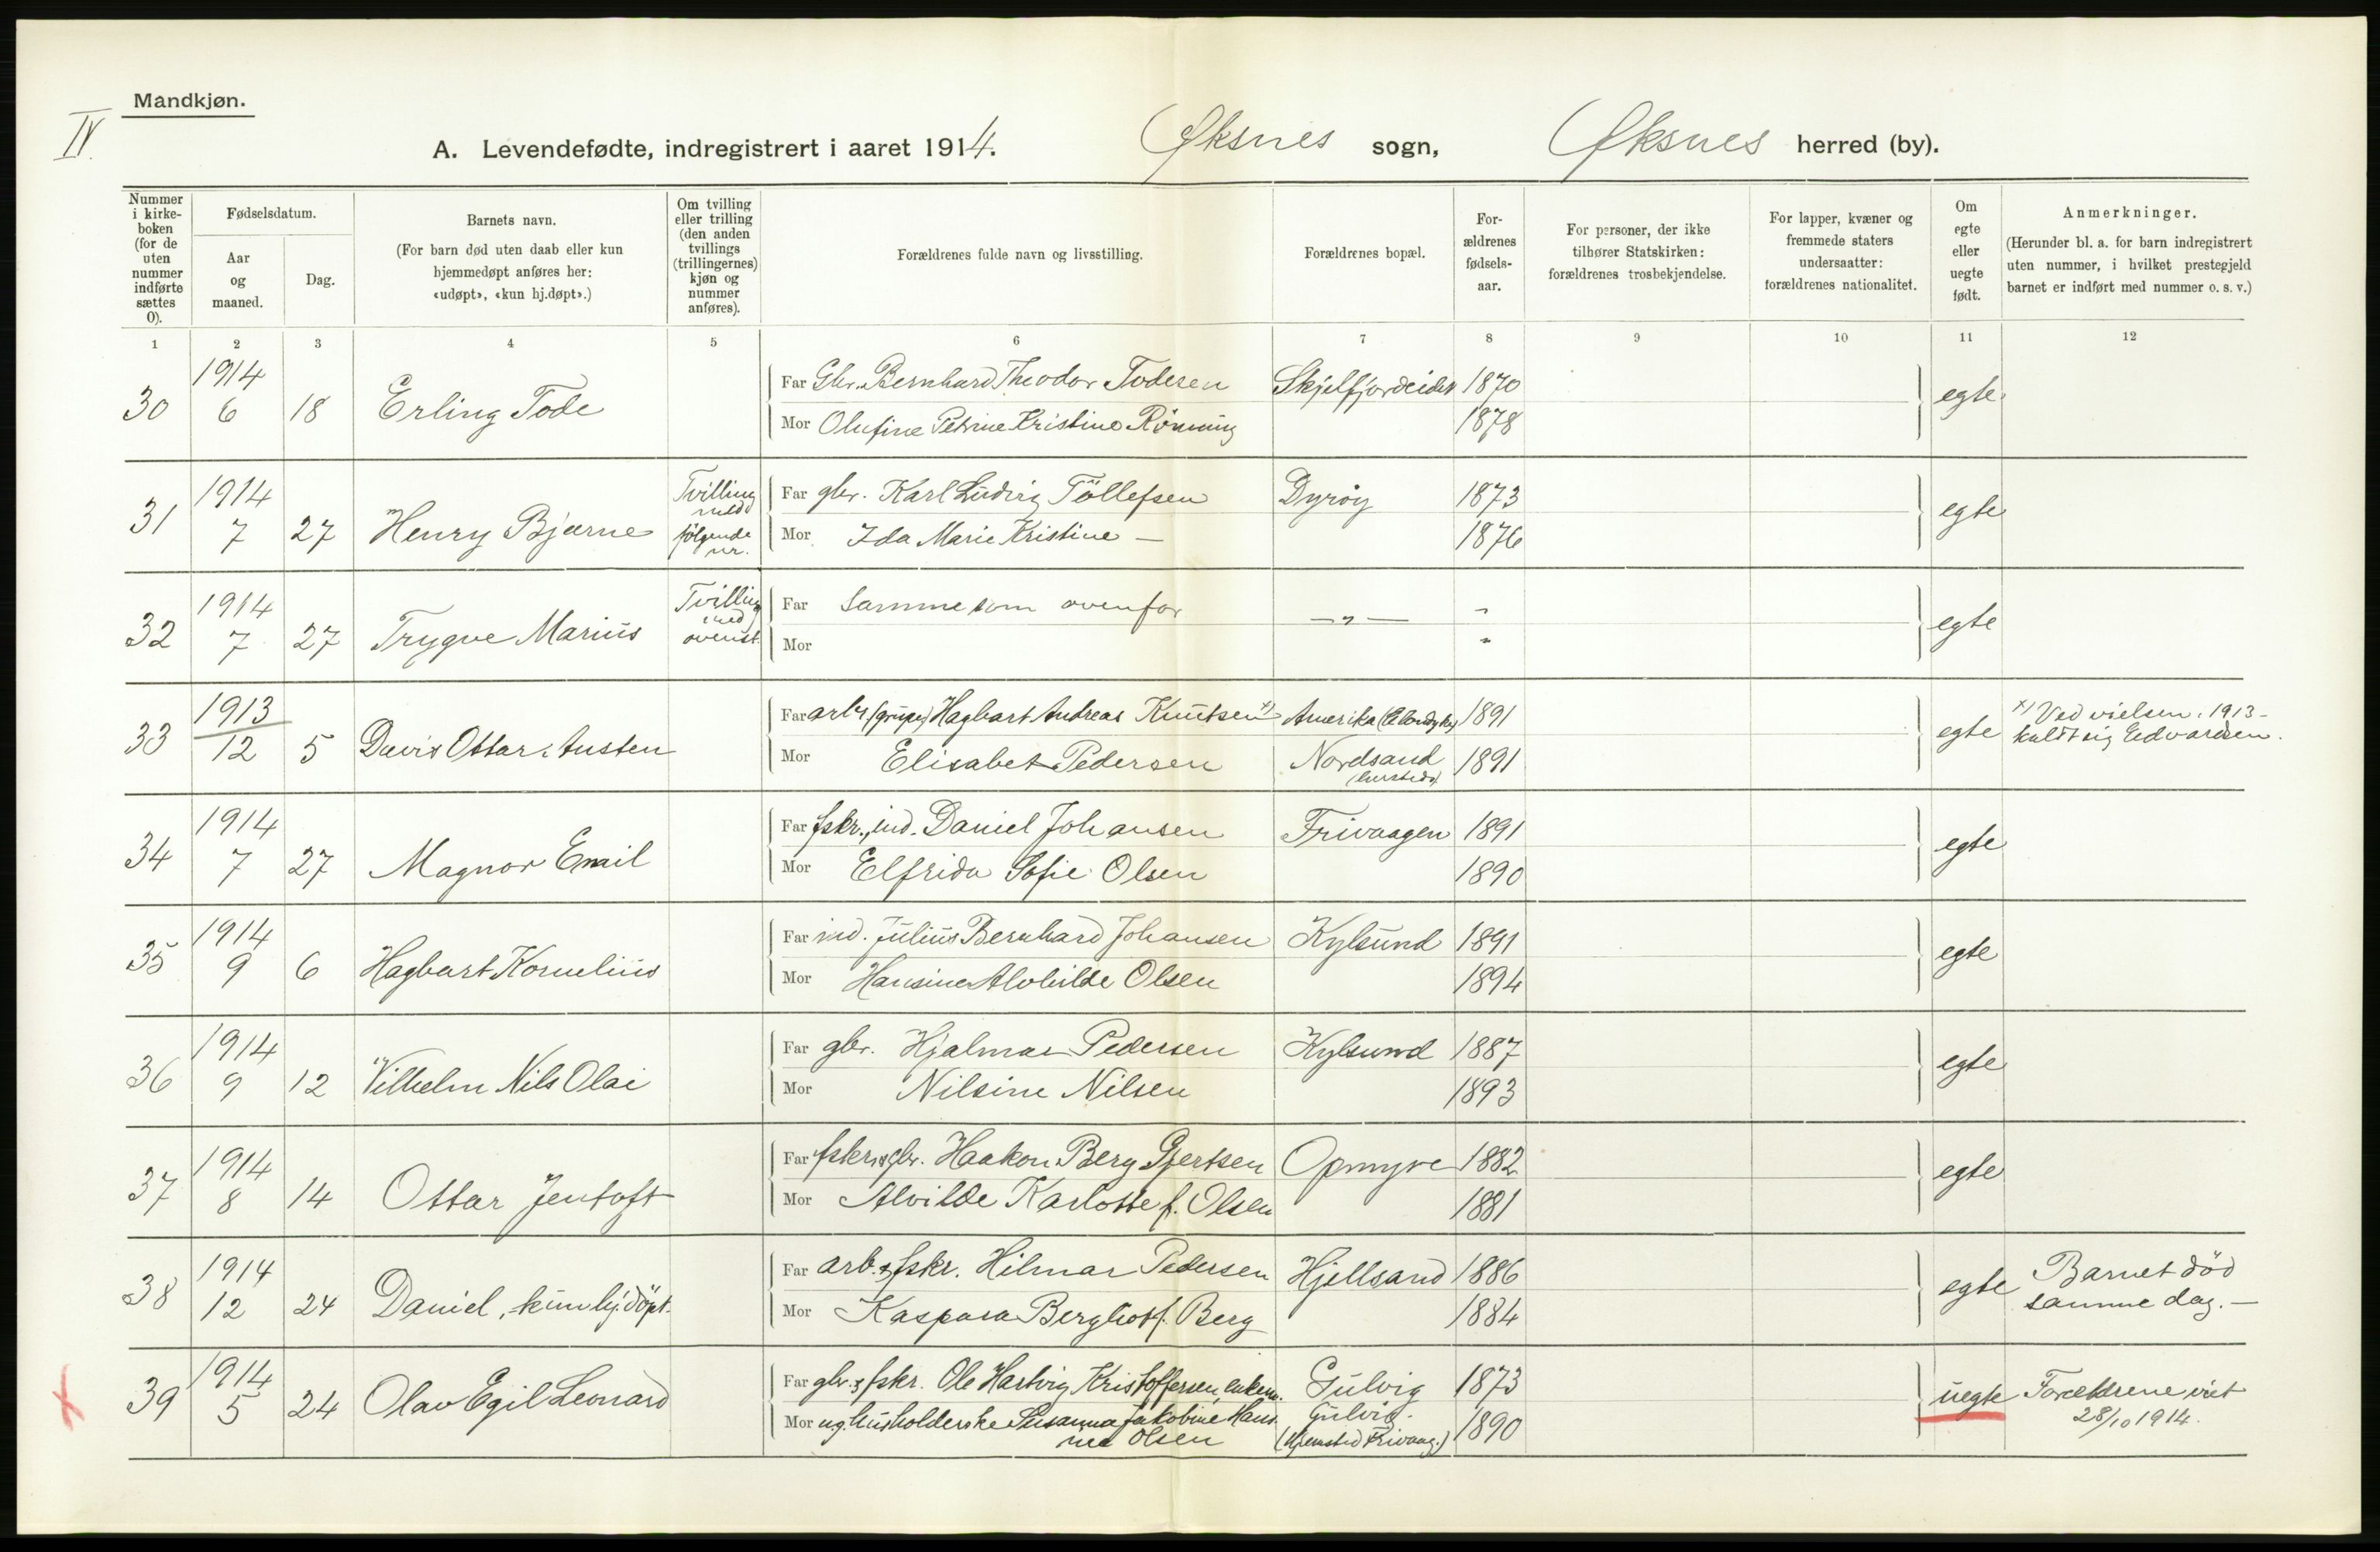 Mandkjøn.
IV.
A. Levendefødte, indregistrert i aaret 1914. Øksnes sogn, Øksnes herred (by).
Nummer i kirke-boken (for de uten nummer indførte sættes 0).
Fødselsdatum.
Aar og maaned.
Dag.
Barnets navn.
(For barn død uten daab eller kun hjemmedøpt anføres her: «udøpt», «kun hj.døpt».)
Om tvilling eller trilling (den anden tvillings (trillingernes) kjøn og nummer anføres).
Forældrenes fulde navn og livsstilling.
Forældrenes bopæl.
For-ældrenes fødsels-aar.
For personer, der ikke tilhører Statskirken: forældrenes trosbekjendelse.
For lapper, kvæner og fremmede staters undersaatter: forældrenes nationalitet.
Om egte eller uegte født.
Anmerkninger.
(Herunder bl. a. for barn indregistrert uten nummer, i hvilket prestegjeld barnet er indført med nummer o. s. v.)
1 2 3 4 5 6 7 8 9 10 11 12
30 1914 6 18 Erling Tode Far Gbr. Bernhard Theodor Todesen Skjelfjordeidet 1870 egte
Mor Olufine Petrine Kristine Rönning 1878
31 1914 7 27 Henry Bjarne Tvilling med følgende nr. Far gbr. Karl Ludvig Töllefsen Dyröy 1873 egte
Mor Ida Marie Kristine — 1876
32 1914 7 27 Trygve Marius Tvilling med ovenst. Far Samme som ovenfor —"— " egte
Mor "
33 1913 12 5 Davis Ottar Austen Far arbr. (grube) Hagbart Andreas Knutsen x) Amerika 1891 egte x) Ved vielsen 1913 kaldt sig Edvardsen.
Mor Elisabet Pedersen Nordsand 1891
34 1914 7 27 Magnor Emil Far fskr., ind. Daniel Johansen Frivaagen 1891 egte
Mor Elfrida Sofie Olsen 1890
35 1914 9 6 Hagbart Kornelius Far ind. Julius Bernhard Johansen Kylsund 1891 egte
Mor Hansine Alvhilde Olsen 1894
36 1914 9 12 Vilhelm Nils Olai Far gbr. Hjalmar Pedersen Kylsund 1887 egte
Mor Nilsine Nilsen 1893
37 1914 8 14 Ottar Jentoft Far fskr. & gbr. Haakon Berg Gjertsen Opmyre 1882 egte
Mor Alvilde Karlotte f. Olsen 1881
38 1914 12 24 Daniel, kun hj.döpt. Far arb. & fskr. Hilmar Pedersen Hjellsand 1886 egte Barnet död samme dag. —
Mor Kaspara Berghot f. Berg 1884
39 1914 5 24 Olav Egil Leonard Far gbr. & fskr. Ole Hartvig Kristoffersen, enkem. Gulvig 1873 uegte Forældrene viet 28/10 1914.
Mor ug. husholderske Susanna Jakobine Hans. Gulvig. 1890
Olsen (Hjemsted Frivaag.)